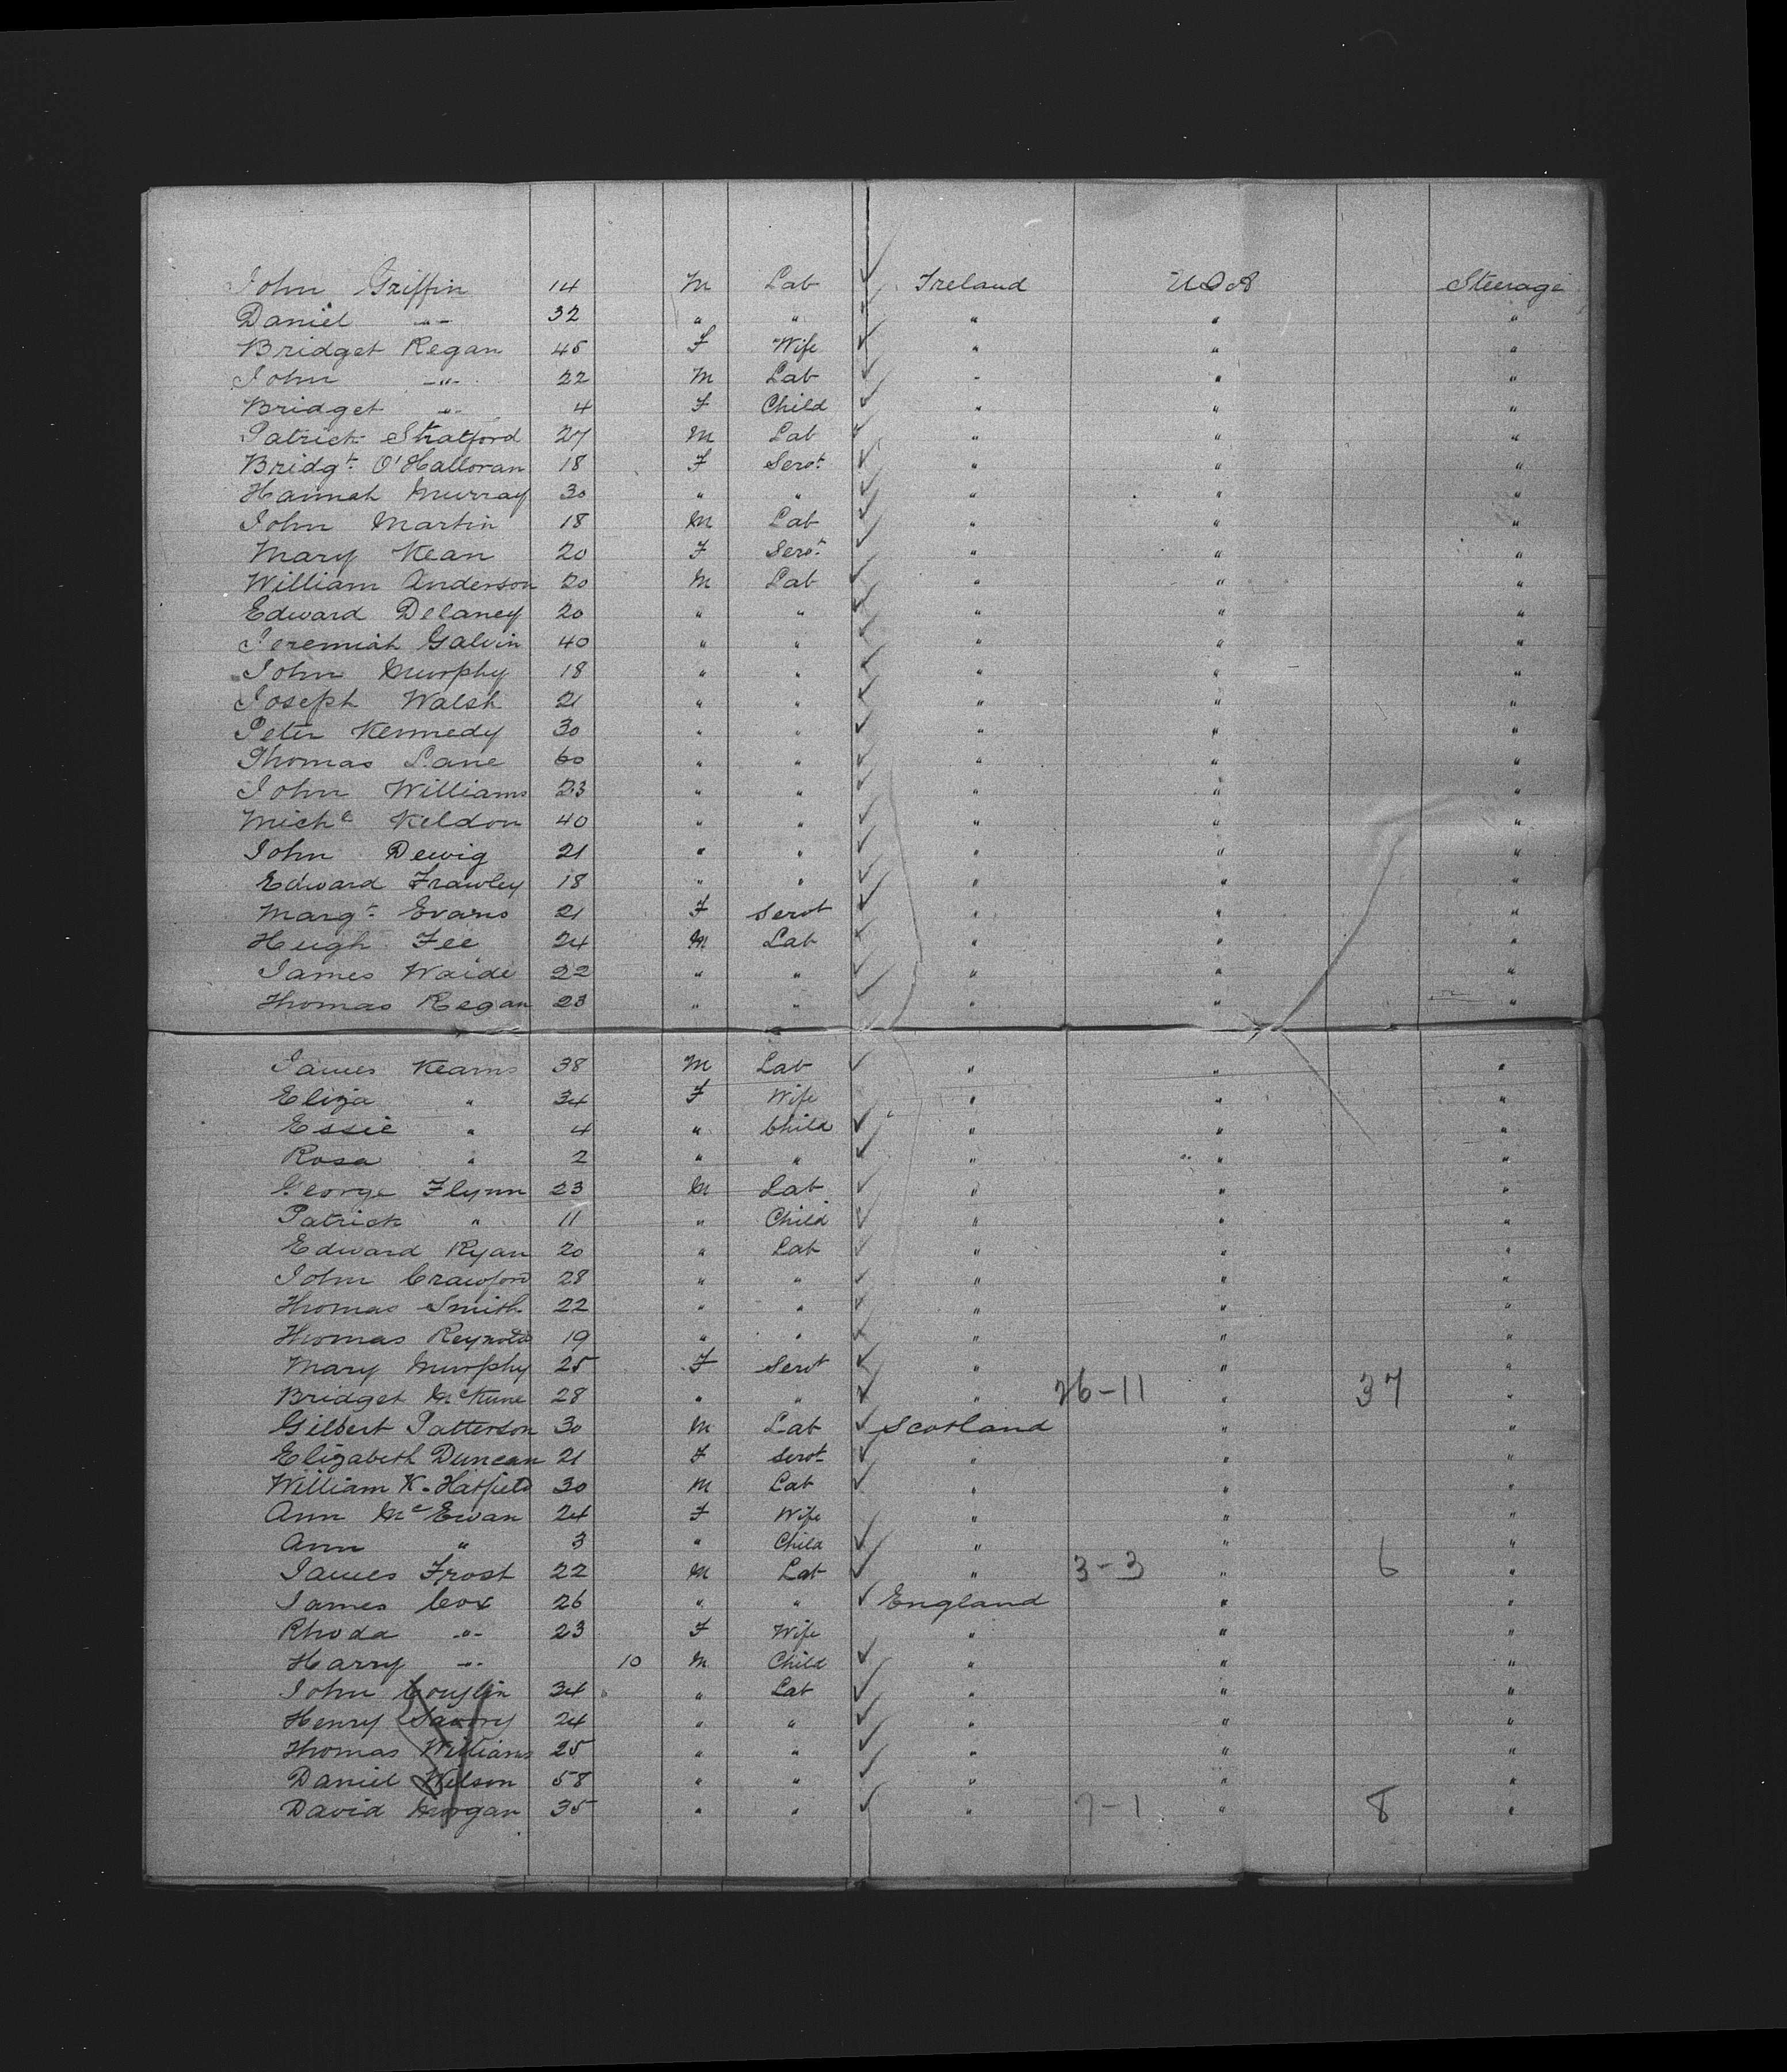 John Griffin 14 M Lab ✓ Ireland USA Steerage
Daniel -"- 32 " " ✓ " " "
Bridget Regan 45 F Wife ✓ " " "
John -"- 22 M Lab ✓ " " "
Bridget -"- 4 F Child ✓ " " "
Patrick Stratford 27 M Lab ✓ " " "
Bridgt O'Halloran 18 F Servt ✓ " " "
Hannah Murray 30 " " ✓ " " "
John Martin 18 M Lab ✓ " " "
Mary Kean 20 F Servt ✓ " " "
William Anderson 20 M Lab ✓ " " "
Edward Delaney 20 " " ✓ " " "
Jeremiah Galvin 40 " " ✓ " " "
John Murphy 18 " " ✓ " " "
Joseph Walsh 21 " " ✓ " " "
Peter Kennedy 30 " " ✓ " " "
Thomas Lane 60 " " ✓ " " "
John Williams 23 " " ✓ " " "
Michl Keldon 40 " " ✓ " " "
John Dewig 21 " " ✓ " " "
Edward Frawley 18 " " ✓ " " "
Margt Evans 21 F Servt ✓ " " "
Hugh Fee 24 M Lab ✓ " " "
James Waide 22 " " ✓ " " "
Thomas Regan 23 " " ✓ " " "
James Kearns 38 M Lab ✓ " " "
Eliza " 34 F Wife " " "
Essie " 4 " Child ✓ " " "
Rosa " 2 " " ✓ " " "
George Flynn 23 M Lab ✓ " " "
Patrick " 11 " Child ✓ " " "
Edward Ryan 20 " Lab ✓ " " "
John Crawford 28 " " ✓ " " "
Thomas Smith 22 " " ✓ " " "
Thomas Reynolds 19 " " ✓ " " "
Mary Murphy 25 F Servt ✓ " " "
Bridget McKune 28 " " ✓ " 26-11 " 37 "
Gilbert Patterson 30 M Lab ✓ Scotland " "
Elizabeth Duncan 21 F Servt ✓ " " "
William K. Hatfield 30 M Lab ✓ " " "
Ann McEwan 24 F Wife " " "
Ann " 3 " Child ✓ " " "
James Frost 22 M Lab ✓ " 3-3 " 6 "
James Cox 26 " " ✓ England " "
Rhoda -"- 23 F Wife " " "
Harry -"- 10 M Child ✓ " " "
John 34 " Lab ✓ " " "
Henry Savory 24 " " ✓ " " "
Thomas Williams 25 " " ✓ " " "
Daniel Wilson 58 " " ✓ " " "
David Morgan 35 " " ✓ " 7-1 " 8 "